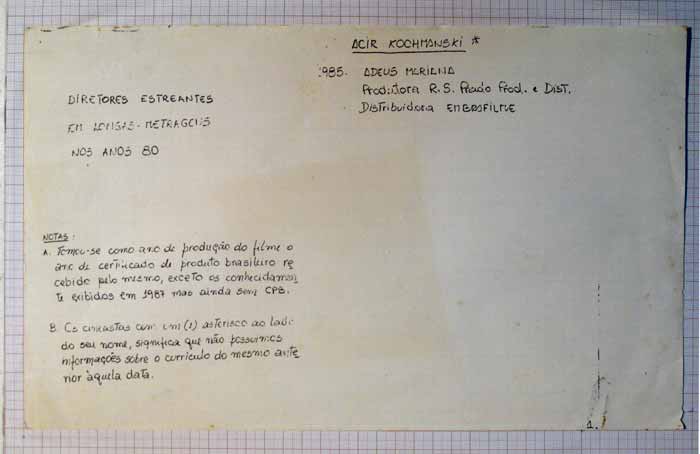 DIRETORES ESTREANTES
EM LONGAS-METRAGENS
NOS ANOS 80
NOTAS:
A. Tomou-se como ano de produção do filme o
ano de certificado de produto brasileiro re
cebido pelo mesmo, exceto os conhecidamen
te exibidos em 1987 mas ainda sem CPB.
B. Os cineastas com um (1) asterisco ao lado
do seu nome, significa que não possuimos
informações sobre o curriculo do mesmo ante
rior àquela data.
ACIR KOCHMANSKI *
1985. ADEUS MARIANA
Produtora R.S. Prado Prod. e Dist.
Distribuidora EMBRAFILME
1.